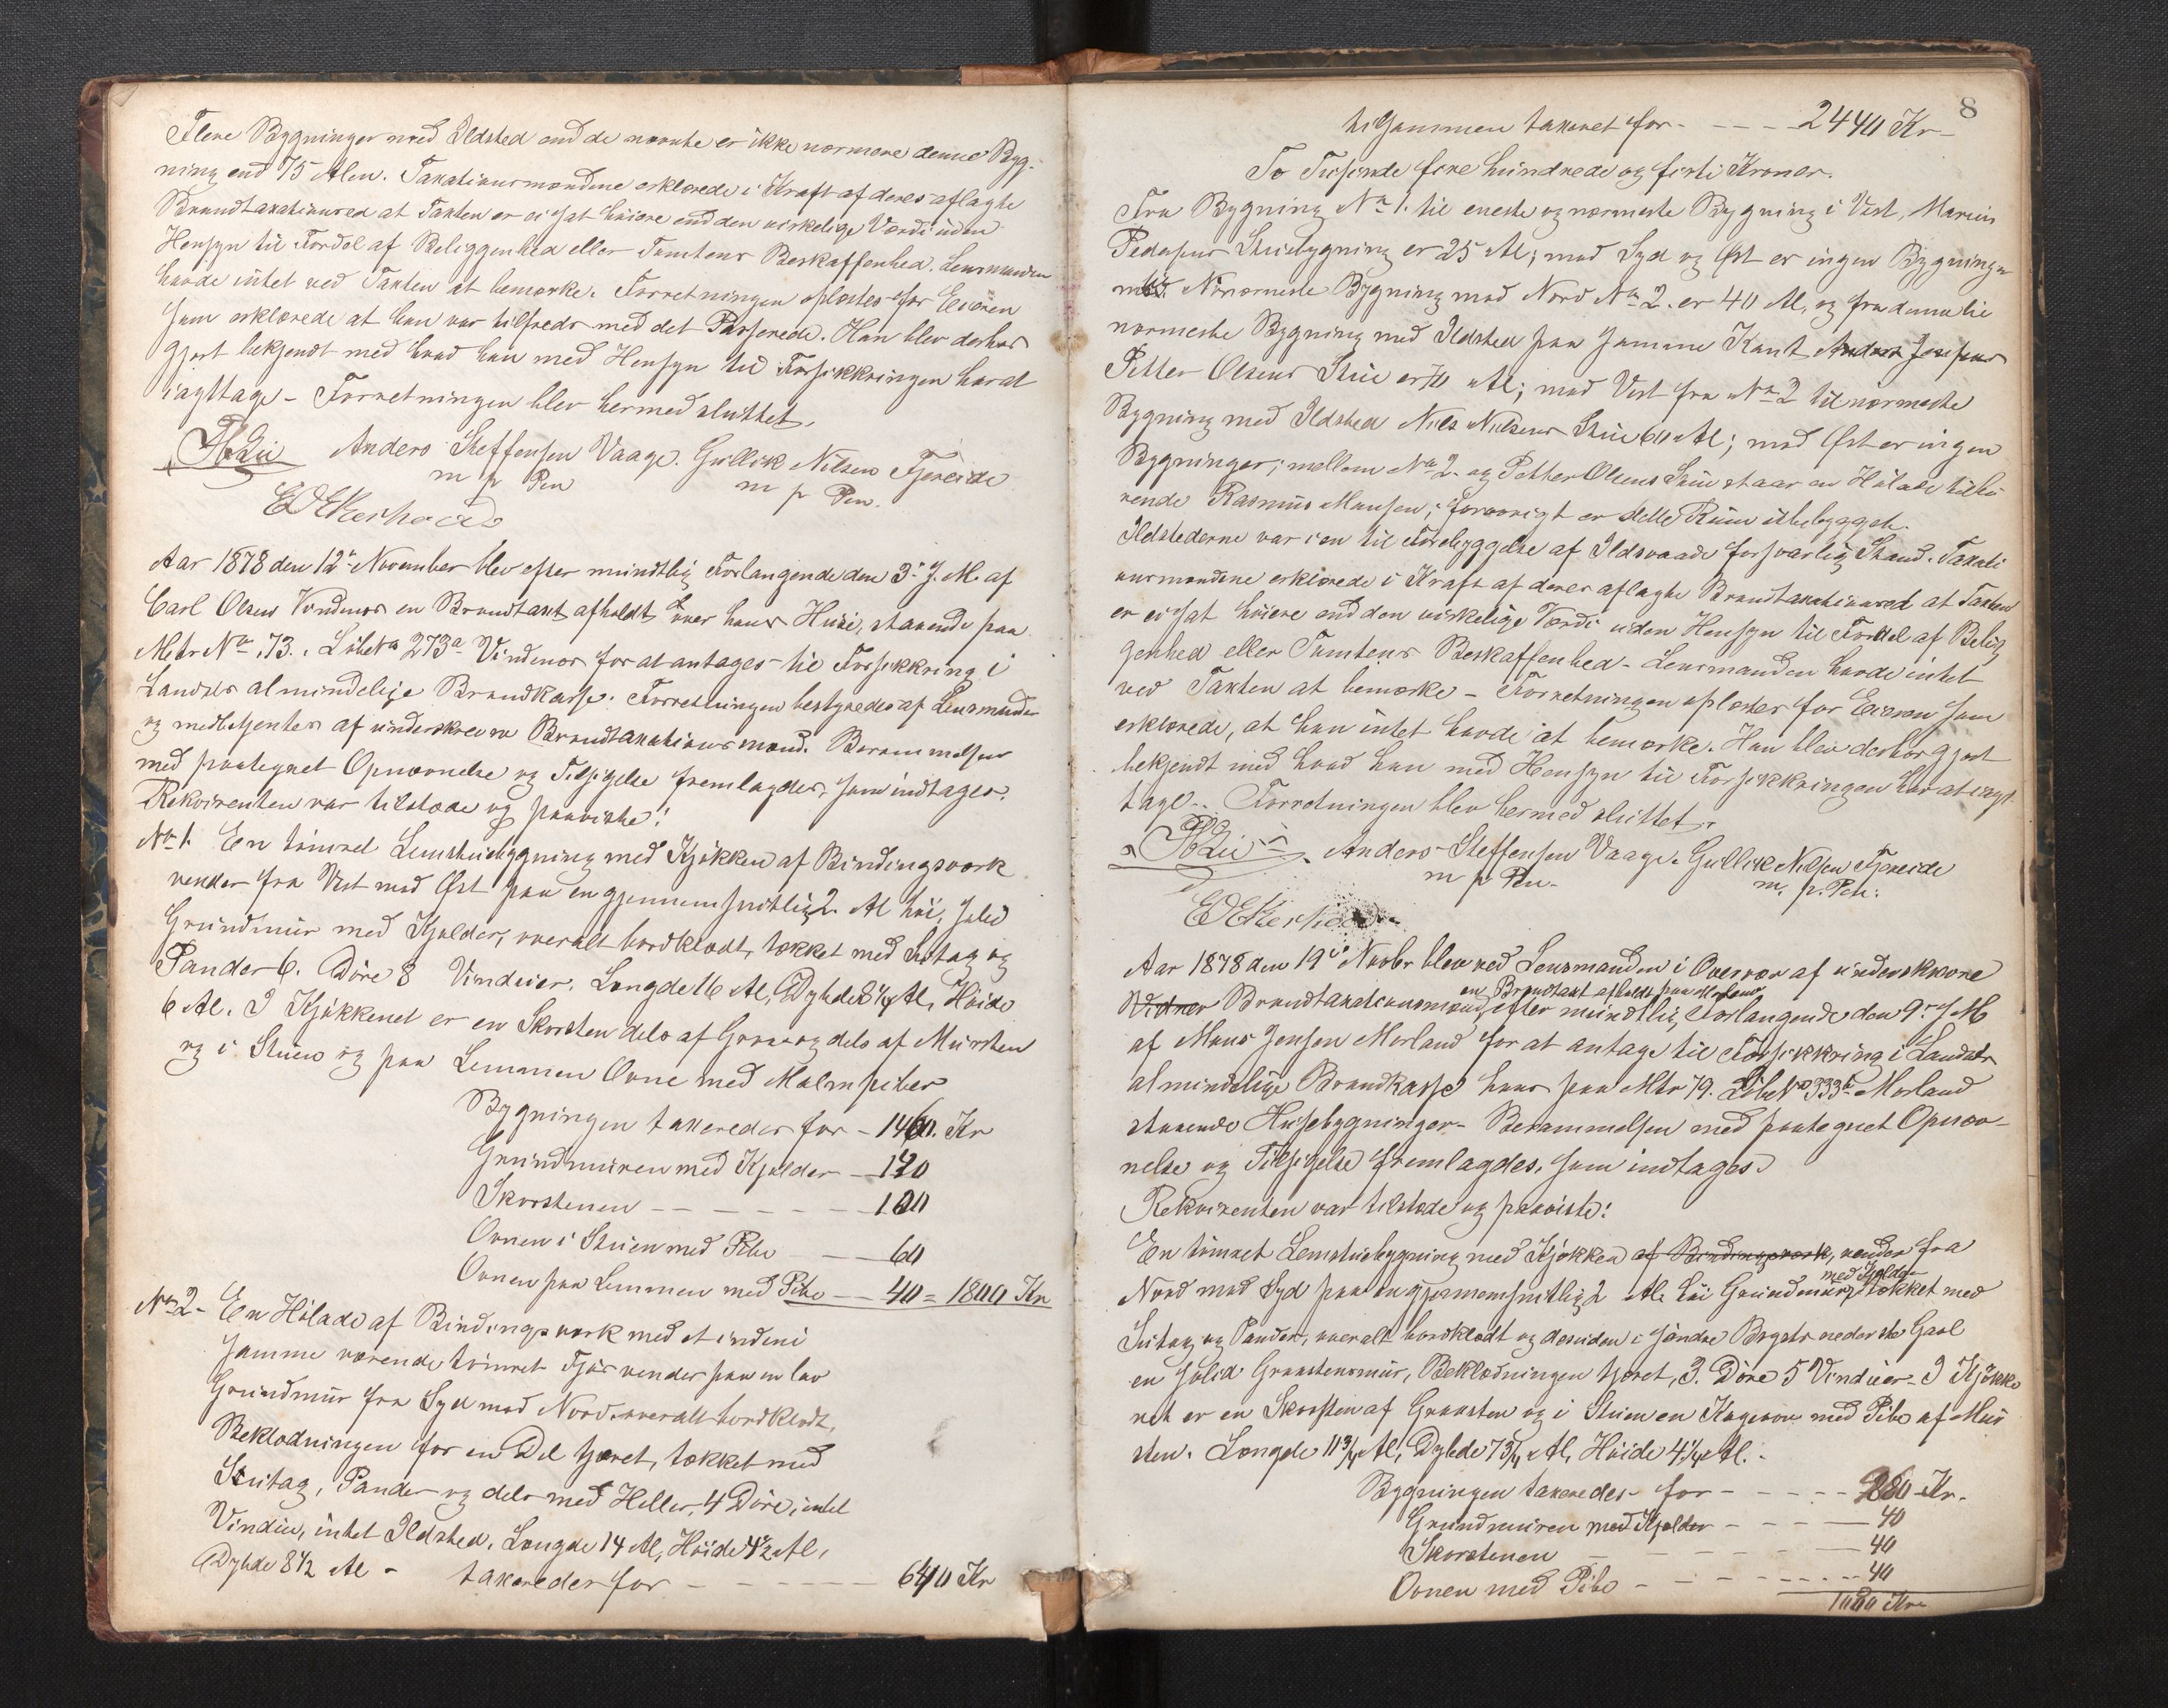 Flere Bygninger med Ildsted end de nævnte er ikke nærmere denne Byg-
ning end 75 Alen. Taxationsmændene erklærede i Kraft af deres aflagte
Brandtaxationsed at Taxten er ei sat høiere end den virkelige Værdi uden
Hensyn til Fordel af Beliggenhed eller Tomtens Beskaffenhed. Lensmanden
havde intet ved Taxten at bemærke. Forretningen oplæstes for Eieren
som erklærede at han var tilfreds med det Passerede. Han blev derhos
gjort bekjendt med hvad han med Hensyn til Forsikkringen har at
iagttage - Forretningen blev hermed sluttet.
Anders Steffensen Vaage. Gullik Nilsen Fjereide
m p Pen m p Pen.
Aar 1878 den 12te November blev efter mundtlig Forlangende den 3. d. M. af
Carl Olsen Vindenes en Brandtaxt afholdt over hans Huse, staaende paa
Mtr No 73. Løbe No 273a Vindenes for at antages til Forsikkring i
Landets almindelige Brandkasse. Forretningen bestyredes af Lensmanden
og medbetjentes af underskrevne Brandtaxationsmænd. Berammelsen
med paategnet Opnævnelse og Tilsigelse fremlagdes, som indtages.
Rekvirenten var tilstede og paaviste:
No 1. En tømret Lemstuebygning med Kjøkken af Bindingsværk
vender fra Vest mod Øst paa en gjennemsnitlig 2 Al høi, solid
Grundmur med Kjelder, overalt bordklædt, tækket med Sutag og
Pander 6. Døre 8 Vinduer. Længde 16 Al, Dybde 8 1/4 Al, Høide
6 Al. I Kjøkkenet er en Skorsten dels af Graa- og dels af Mursten
og i Stuen og paa Lemmen Ovne med Malmpiber
Bygningen taxeredes for - 1460. Kr
Grundmuren med Kjelder - 140
Skorstenen - - - - - - 100
Ovnen i Stuen med Pibe - - 60
Ovnen paa Lemmen med Pibe - - 40 = 1800 Kr
No 2 - En Hølade af Bindingsværk med et indeni
samme værende tømret Fjøs vender paa en lav
Grundmur fra Syd mod Nord. overalt bordklædt,
Beklædningen for en Del tjæret, tækket med
Sutag, Pander og dels med Heller, 4 Døre, intet
Vindue, intet Ildsted. Længde 14 Al, Høide 4 1/2 Al,
Dybde 8 1/2 Al - taxeredes for - - - - - 640 Kr
8
tilsammen taxeret for - - - - 2440 Kr -
To Tusinde fire hundrede og firti Kroner.
Fra Bygning No 1. til eneste og nærmeste Bygning i Vest, Marius
Pedersens Stuebygning er 25 Al; mod Syd og Øst er ingen Bygninger
Nærmeste Bygning mod Nord No 2. er 40 Al, og fra denne til
nærmeste Bygning med Ildsted paa samme Kant
Petter Olsens Stue er 70 Al; mod Vest fra No 2 til nærmeste
Bygning med Ildsted Nils Nilsens Stue 60 Al; mod Øst er ingen
Bygninger; mellem No 2. og Petter Olsens Stue staar en Hølade tilhø
rende Rasmus Monsen; forøvrigt er dette Rum ubebygget.
Ildstederne var i en til Forebyggelse af Ildsvaade forsvarlig Stand. Taxati
onsmændene erklærede i Kraft af deres aflagte Brandtaxationsed at Taxten
er ei sat høiere end den virkelige Værdi uden Hensyn til Fordel af Belig
genhed eller Tomtens Beskaffenhed - Lensmanden havde intet
ved Taxten at bemærke - Forretningen oplæstes for Eieren som
erklærede, at han intet havde at bemærke. Han blev derhos gjort
bekjendt med hvad han med Hensyn til Forsikkringen har at iagt-
tage. - Forretningen blev hermed sluttet.
Anders Steffensen Vaage. Gullik Nilsen Fjereide
m p Pen - m. p. Pen:
Aar 1878 den 19de Novbr blev ved Lensmanden i Overvær af underskrevne
en Brandtaxt afholdt paa Morland
Vidner Brandtaxationsmænd efter mundtlig Forlangende den 9. d. M
af Mons Jensen Morland for at antage til Forsikkring i Landets
almindelige Brandkasse hans paa Mtr 79. Løbe No 333b Morland
staaende Husebygninger - Berammelsen med paategnet Opnæv-
nelse og Tilsigelse fremlagdes, som indtages.
Rekvirenten var tilstede og paaviste:
En tømret Lemstuebygning med Kjøkken af Bindingsværk, vender fra
med Kjelder
Nord mod Syd paa en gjennemsnitlig 2 Al. høi Grundmur, tækket med
Sutag og Pander, overalt bordklædt og desuden i søndre Bygets nederste Gavl
en solid Graastensmur, Beklædningen tjæret, 3. Døre 5 Vinduer - I Kjøkke
net er en Skorsten af Graasten og i Stuen en Kageovn med Pibe af Mur
sten. Længde 11 3/4 Al, Dybde 7 3/4 Al, Høide 4 1/4 Al. -
Bygningen taxeredes for - - - - - 960 Kr.
Grundmuren med Kjelder - - - - 40
Skorstenen - - - - - 40
Ovnen med Pibe - - - - - 40
1080 Kr